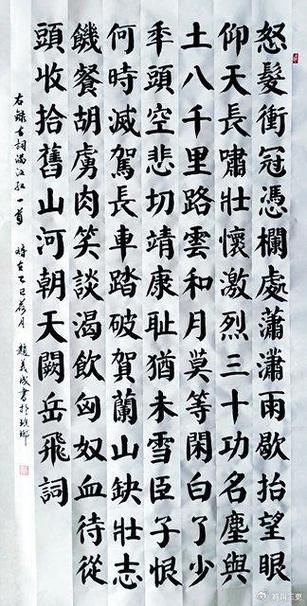 怒髮衝冠憑欄處蕭瀟雨歇抬望眼
仰天長嘯壯懷激烈三十功名塵與
土八千里路雲和月莫等閑白了少
秊頭空悲切靖康恥猶未雪臣子恨
何時減駕長車踏破賀蘭山缺壯志
饑餐胡虜肉笑談渴飲匈奴血待從
頭收拾舊山河朝天闕岳飛詞
右錄古詞滿江紅一首 時在乙巳荷月 趙美成書於琅琊